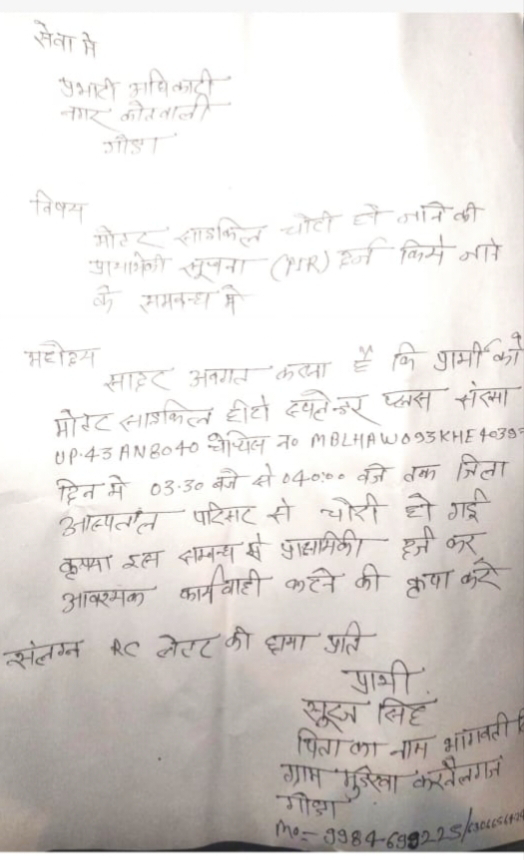 सेवा मे
प्रभारी अधिकारी
नगर कोतवाली
गोण्डा
विषय
मोटर साइकिल चोरी हो जाने की
सूचना दर्ज किये जाने
के समबन्ध मे
महोदय
सादर अवगत कराना है कि प्रार्थी की
मोटर साइकिल हीरो स्पलेन्डर प्लस संख्या
UP.43 AN8040 चेचिस न० MBLHAW093KHE4039
दिन मे 03.30 बजे से 04:00 बजे तक जिला
अस्पताल परिसर से चोरी हो गई
कृपया इस सम्बन्ध मे प्राथमिकी दर्ज कर
आवश्यक कार्यवाही करने की कृपा करे
संलग्न RC लेटर की छाया प्रति
प्रार्थी
सूरज सिंह
पिता का नाम भागवती
ग्राम करनैलगंज
गोण्डा
Mo = 9984699225/